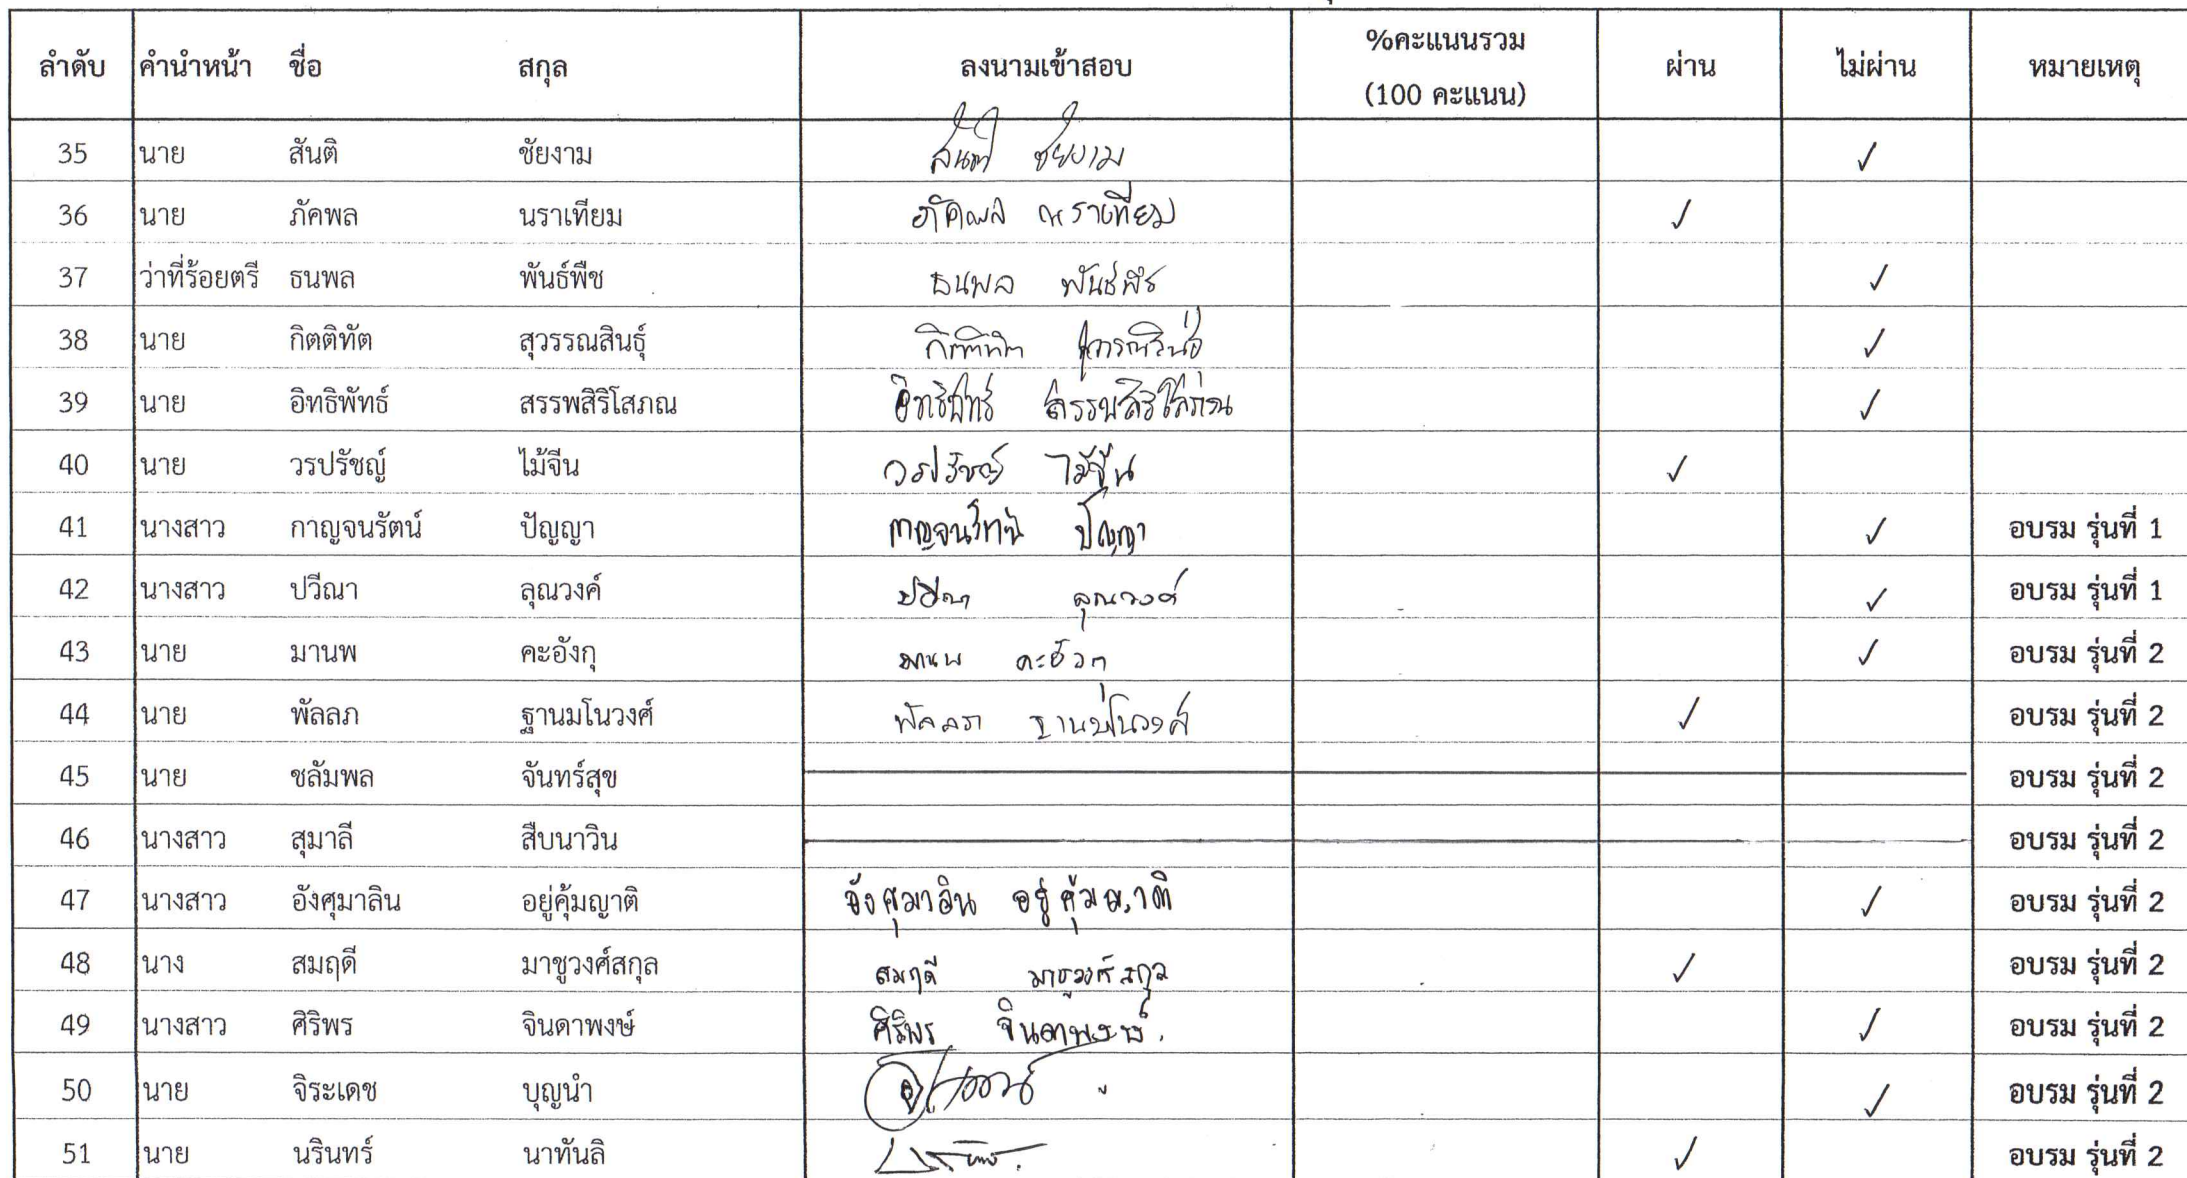 ลำดับ คำนำหน้า ชื่อ สกุล ลงนามเข้าสอบ %คะแนนรวม (100 คะแนน) ผ่าน ไม่ผ่าน หมายเหตุ
35 นาย สันติ ชัยงาม สันติ ชัยงาม ✓
36 นาย ภัคพล นราเทียม ภัคพล นราเทียม ✓
37 ว่าที่ร้อยตรี ธนพล พันธ์พืช ธนพล พันธ์พืช ✓
38 นาย กิตติทัต สุวรรณสินธุ์ กิตติทัต สุวรรณสินธุ์ ✓
39 นาย อิทธิพัทธ์ สรรพสิริโสภณ อิทธิพัทธ์ สรรพสิริโสภณ ✓
40 นาย วรปรัชญ์ ไม้จีน วรปรัชญ์ ไม้จีน ✓
41 นางสาว กาญจนรัตน์ ปัญญา กาญจนรัตน์ ปัญญา ✓ อบรม รุ่นที่ 1
42 นางสาว ปวีณา ลุณวงค์ ปวีณา ลุณวงค์ ✓ อบรม รุ่นที่ 1
43 นาย มานพ คะอังกุ มานพ คะอังกุ ✓ อบรม รุ่นที่ 2
44 นาย พัลลภ ฐานมโนวงศ์ พัลลภ ฐานมโนวงศ์ ✓ อบรม รุ่นที่ 2
45 นาย ชลัมพล จันทร์สุข อบรม รุ่นที่ 2
46 นางสาว สุมาลี สืบนาวิน อบรม รุ่นที่ 2
47 นางสาว อังศุมาลิน อยู่คุ้มญาติ อังศุมาลิน อยู่คุ้มญาติ ✓ อบรม รุ่นที่ 2
48 นาง สมฤดี มาชูวงศ์สกุล สมฤดี มาชูวงศ์สกุล ✓ อบรม รุ่นที่ 2
49 นางสาว ศิริพร จินดาพงษ์ ศิริพร จินดาพงษ์ ✓ อบรม รุ่นที่ 2
50 นาย จิระเดช บุญนำ ✓ อบรม รุ่นที่ 2
51 นาย นรินทร์ นาทันลิ ✓ อบรม รุ่นที่ 2